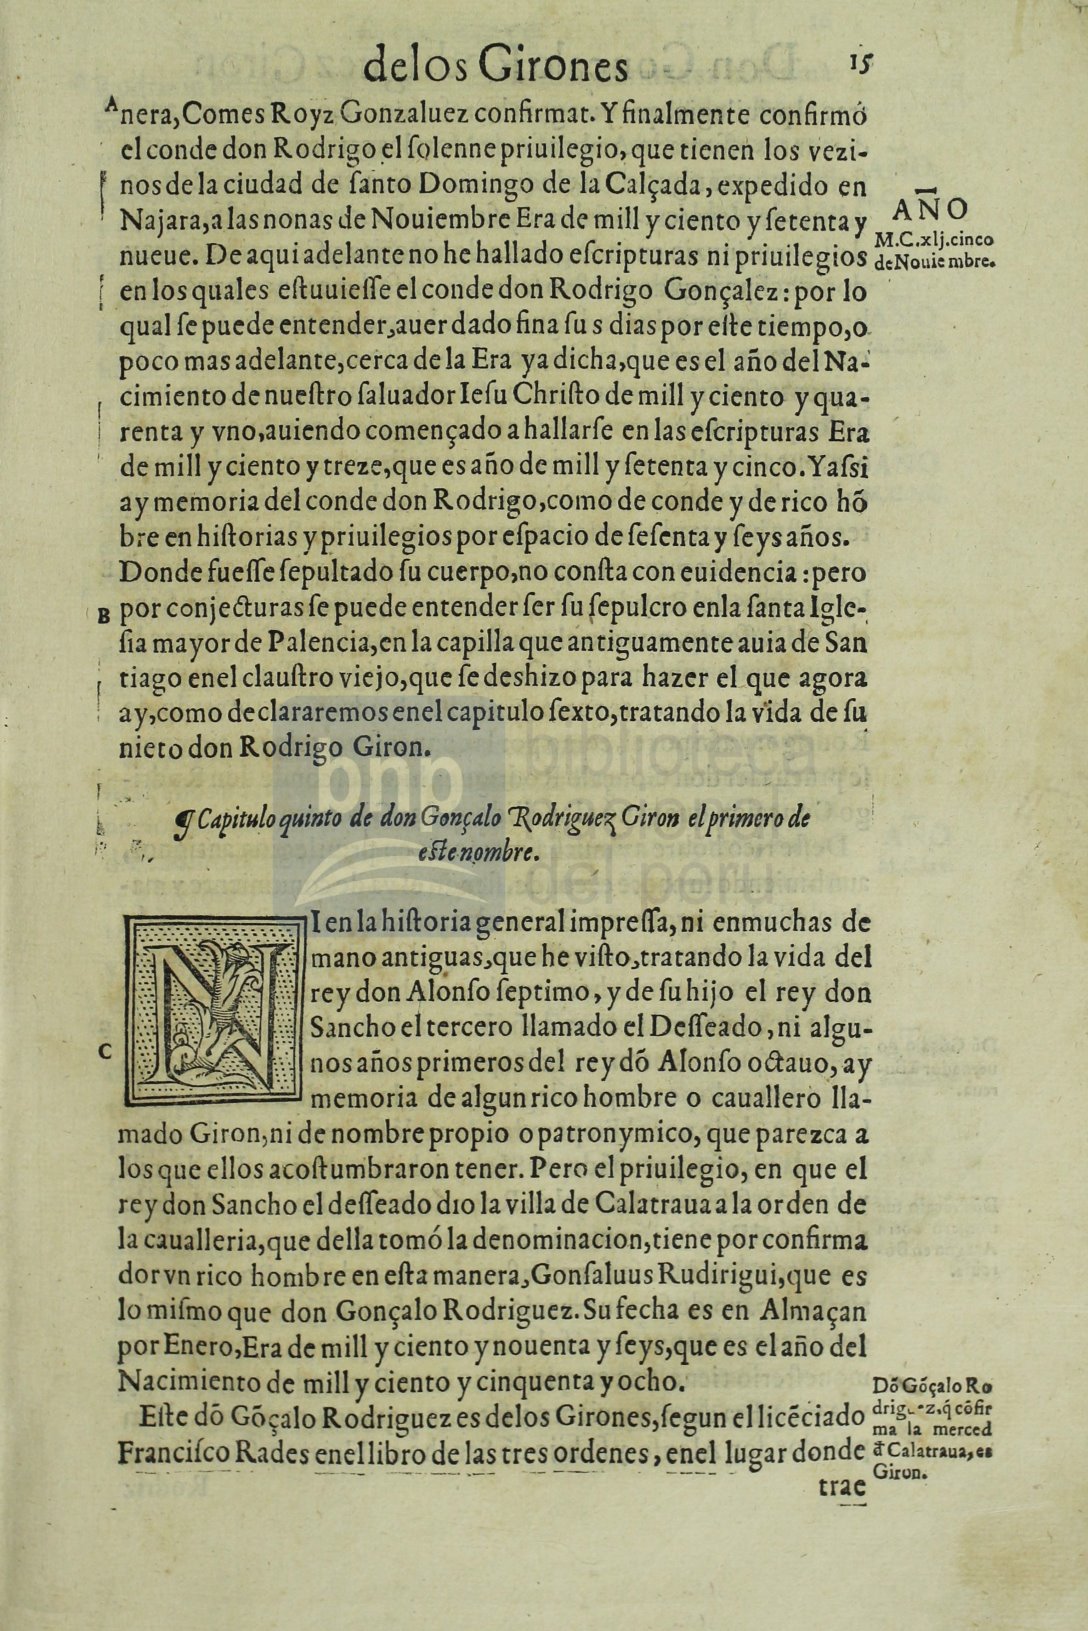 delos Girones 15
A nera, Comes Royz Gonzaluez confirmat. Y finalmente confirmó
el conde don Rodrigo el ſolenne priuilegio, que tienen los vezi-
nos de la ciudad de ſanto Domingo de la Calçada, expedido en
Najara, a las nonas de Nouiembre Era de mill y ciento y ſetenta y
nueue. De aqui adelante no he hallado eſcripturas ni priuilegios
AÑO
M.C.xlj.cinco
de Nouiembre.
en los quales eſtuuieſſe el conde don Rodrigo Gonçalez: por lo
qual ſe puede entender, auer dado fin a ſus dias por eſte tiempo, o
poco mas adelante, cerca de la Era ya dicha, que es el año del Na-
cimiento de nueſtro ſaluador Ieſu Chriſto de mill y ciento y qua-
renta y vno, auiendo començado a hallarſe en las eſcripturas Era
de mill y ciento y treze, que es año de mill y ſetenta y cinco. Y aſsi
ay memoria del conde don Rodrigo, como de conde y de rico hõ
bre en hiſtorias y priuilegios por eſpacio de ſeſenta y ſeys años.
Donde fueſſe ſepultado ſu cuerpo, no conſta con euidencia: pero
B por conjecturas ſe puede entender ſer ſu ſepulcro enla ſanta Igle-
ſia mayor de Palencia, en la capilla que antiguamente auia de San
tiago enel clauſtro viejo, que ſe deshizo para hazer el que agora
ay, como declararemos enel capitulo ſexto, tratando la vida de ſu
nieto don Rodrigo Giron.
¶ Capitulo quinto de don Gonçalo Rodriguez Giron el primero de
eſte nombre.
NI en la hiſtoria general impreſſa, ni en muchas de
mano antiguas, que he viſto, tratando la vida del
rey don Alonſo ſeptimo, y de ſu hijo el rey don
Sancho el tercero llamado el Deſſeado, ni algu-
C nos años primeros del rey dõ Alonſo octauo, ay
memoria de algun rico hombre o cauallero lla-
mado Giron, ni de nombre propio o patronymico, que parezca a
los que ellos acoſtumbraron tener. Pero el priuilegio, en que el
rey don Sancho el deſſeado dio la villa de Calatraua a la orden de
la caualleria, que della tomó la denominacion, tiene por confirma
dor vn rico hombre en eſta manera, Gonſaluus Rudirigui, que es
lo miſmo que don Gonçalo Rodriguez. Su fecha es en Almaçan
por Enero, Era de mill y ciento y nouenta y ſeys, que es el año del
Nacimiento de mill y ciento y cinquenta y ocho.
Eſte dõ Gõçalo Rodriguez es delos Girones, ſegun el licẽciado
Franciſco Rades enel libro de las tres ordenes, enel lugar donde
Dõ Gõçalo Ro
driguez, q̃ cõfir
ma la merced
d̃ Calatraua, es
Giron.
trae
bnp biblioteca
del perú